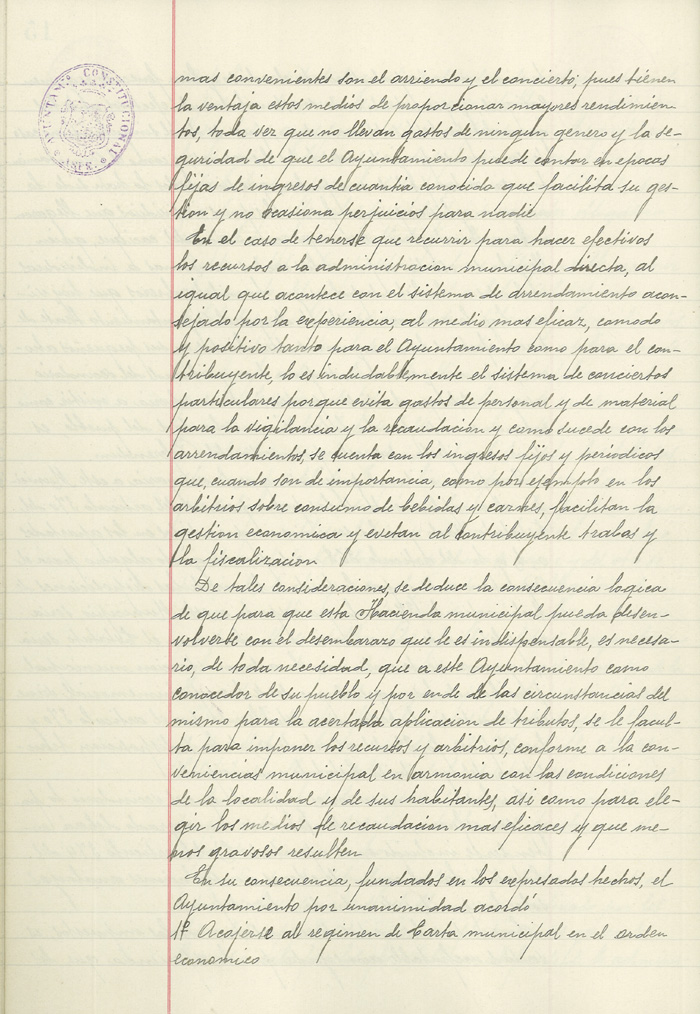 AYUNTAMTO CONSTITUCIONAL
ASPE
mas convenientes son el arriendo y el concierto, pues tienen
la ventaja estos medios de proporcionar mayores rendimien-
tos, toda vez que no llevan gastos de ningun genero y la se-
guridad de que el Ayuntamiento puede contar en epocas
fijas de ingresos de cuantia conocida que facilita su ges-
tion y no ocasiona perjuicios para nadie
En el caso de tenerse que recurrir para hacer efectivos
los recursos a la administracion municipal directa, al
igual que acontece con el sistema de arrendamiento acon-
sejado por la experiencia, al medio mas eficaz, comodo
y positivo tanto para el Ayuntamiento como para el con-
tribuyente, lo es indudablemente el sistema de conciertos
particulares porque evita gastos de personal y de material
para la vigilancia y la recaudacion y como sucede con los
arrendamientos, se cuenta con los ingresos fijos y periodicos
que, cuando son de importancia, como por ejemplo en los
arbitrios sobre consumo de bebidas y carnes, facilitan la
gestion economica y evitan al contribuyente trabas y
la fiscalizacion
De tales consideraciones, se deduce la consecuencia logica
de que para que esta Hacienda municipal pueda desen-
volverse con el desembarazo que le es indispensable, es necesa-
rio, de toda necesidad, que a este Ayuntamiento como
conocedor de su pueblo y por ende de las circunstancias del
mismo para la acertada aplicacion de tributos, se le facul-
ta para imponer los recursos y arbitrios, conforme a la con-
veniencias municipal en armonia con las condiciones
de la localidad y de sus habitantes, asi como para ele-
gir los medios de recaudacion mas eficaces y que me-
nos gravosos resulten
En su consecuencia, fundados en los expresados hechos, el
Ayuntamiento por unanimidad acordó
1º Acojerse al regimen de Carta municipal en el orden
economico